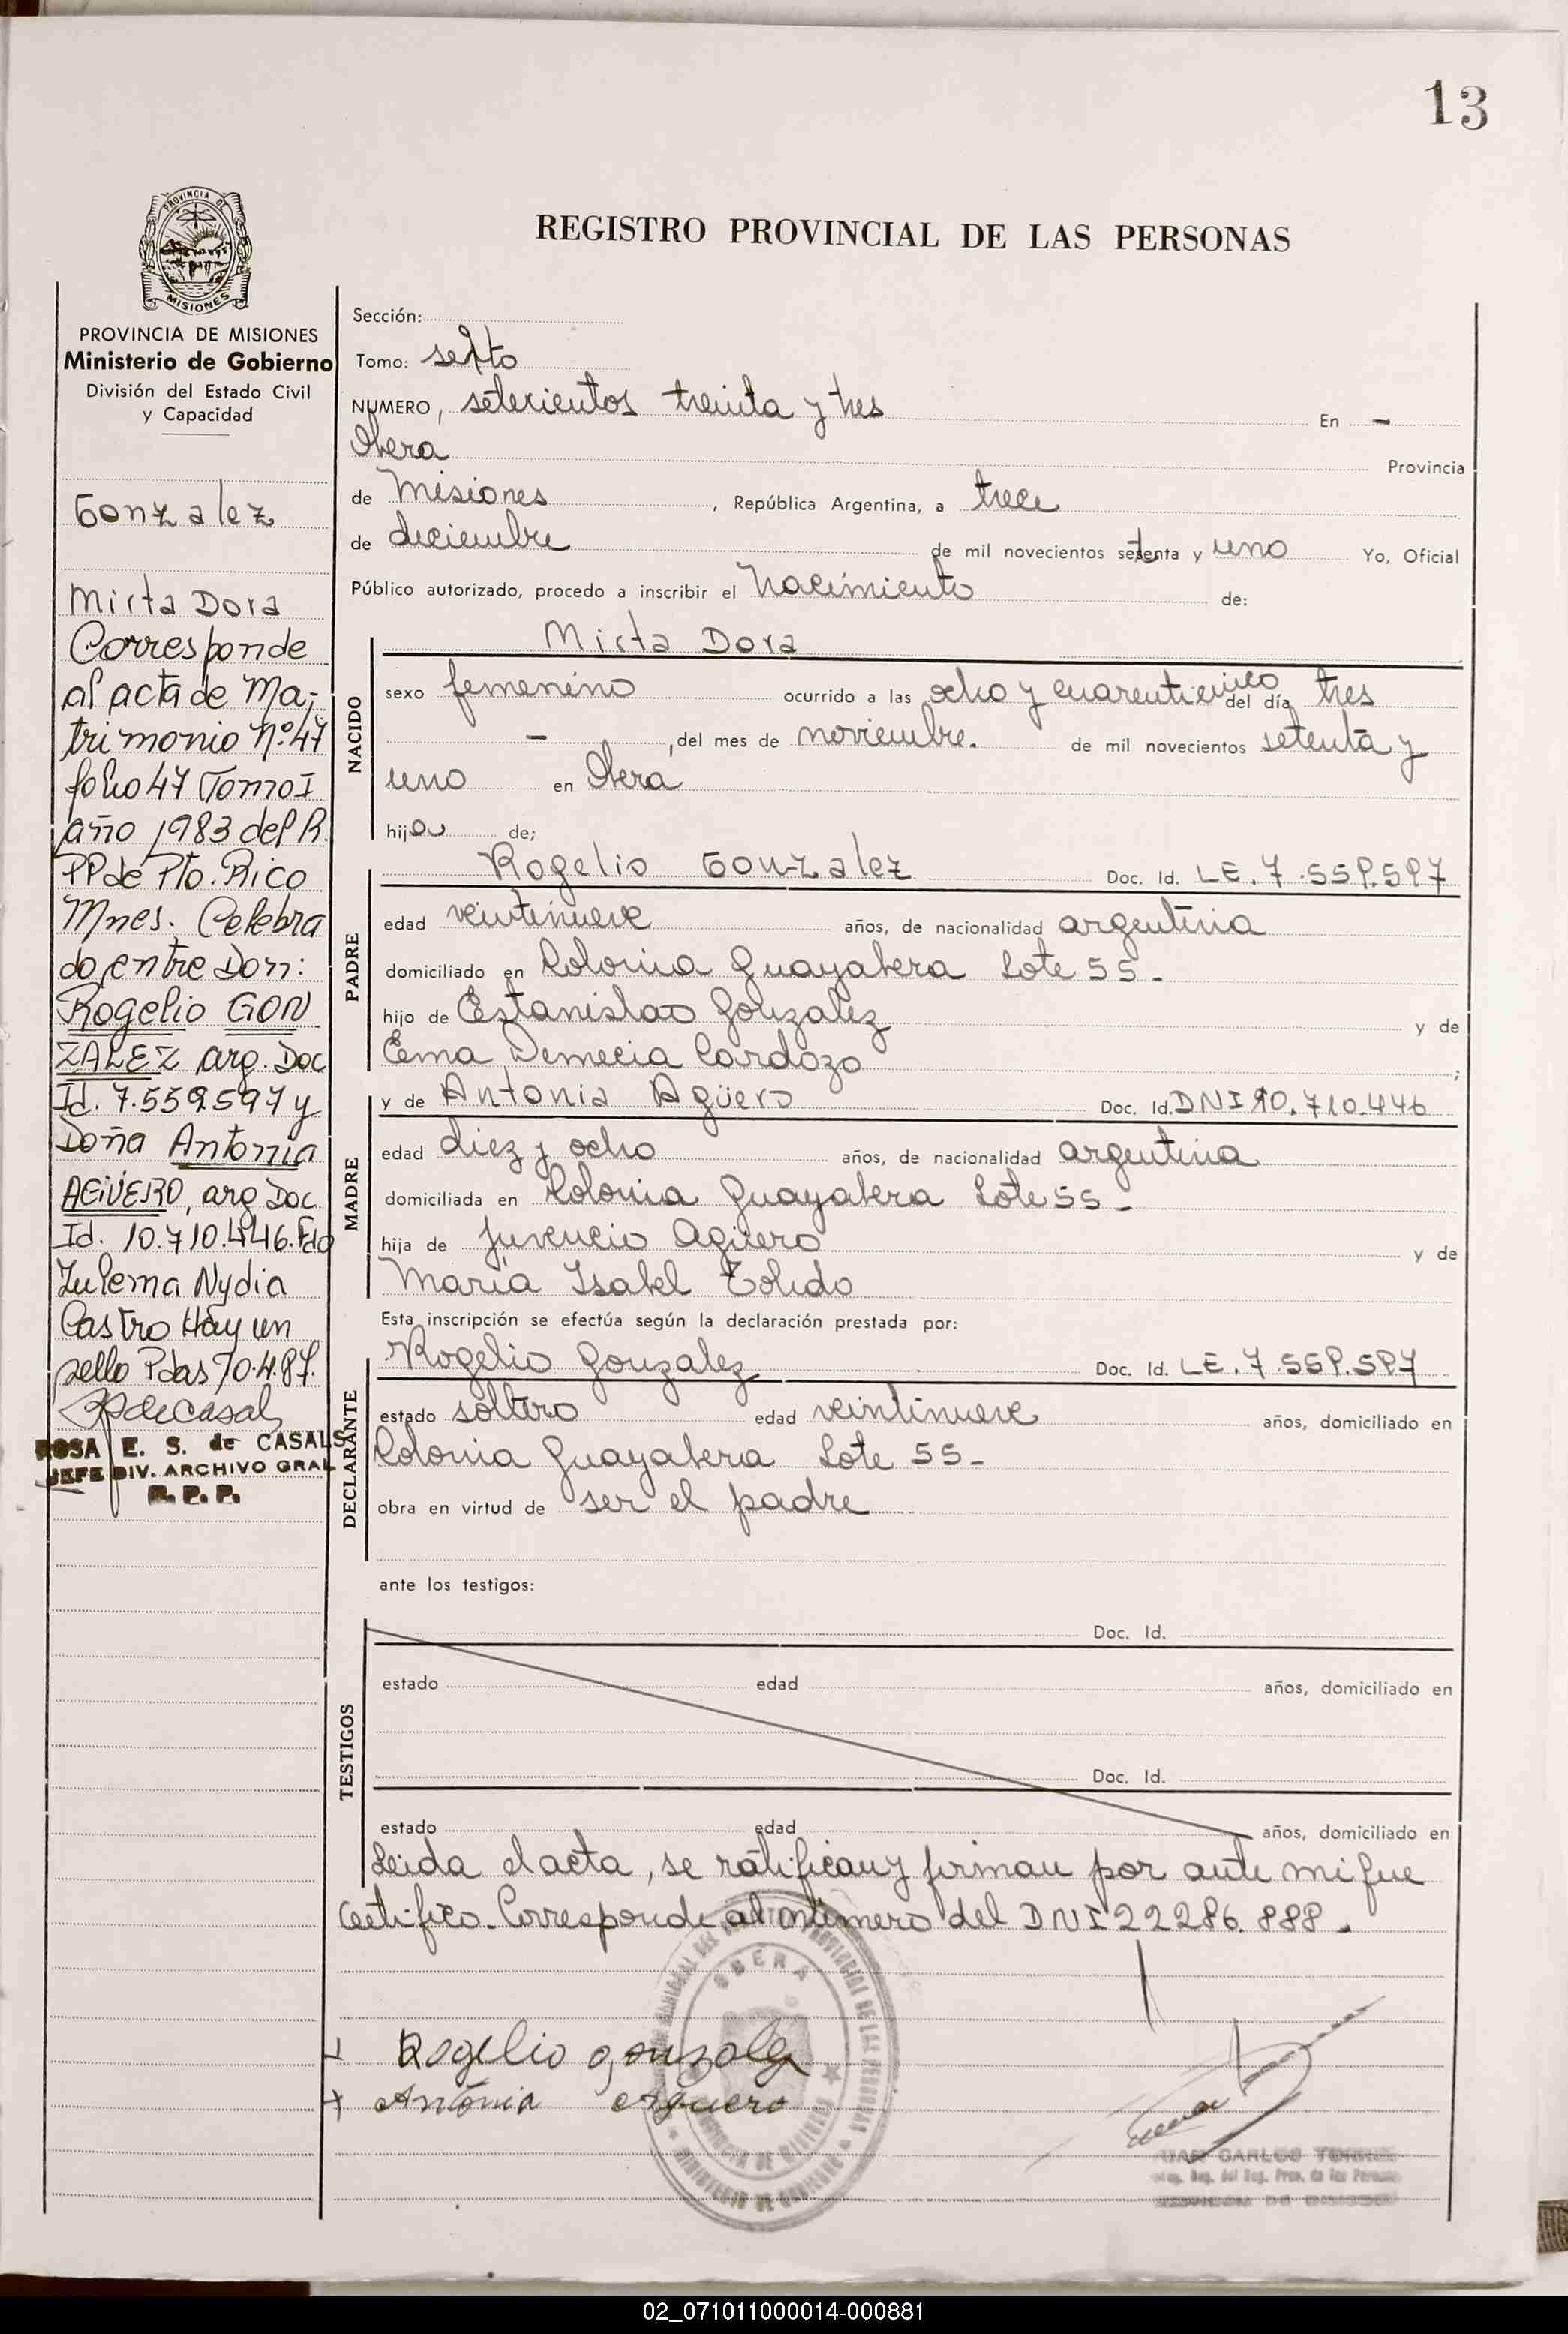 13
PROVINCIA DE
MISIONES
PROVINCIA DE MISIONES
Ministerio de Gobierno
División del Estado Civil
y Capacidad
Gonzalez
Mirta Dora
Corresponde
al acta de Ma-
trimonio Nº 47
folio 47 Tomo I
año 1983 del R.
PP de Pto. Rico
Mnes. Celebra
do, entre Don:
Rogelio GON
ZALEZ arg. Doc
Id. 7.559.597 y
Doña Antonia
AGÜERO, arg Doc
Id. 10.710.446. Fdo
Zulema Nydia
Castro Hay un
sello Pdas 70.4.87.
ROSA E. S. de CASALS
JEFE DIV. ARCHIVO GRAL
R. P. P.
REGISTRO PROVINCIAL DE LAS PERSONAS
Sección:
Tomo: sexto
NUMERO, setecientos treinta y tres En -
Obera Provincia
de Misiones, República Argentina, a trece
de diciembre de mil novecientos setenta y uno Yo, Oficial
Público autorizado, procedo a inscribir el Nacimiento de:
NACIDO
Mirta Dora
sexo femenino ocurrido a las ocho y cuarenticinco del día tres
- , del mes de noviembre. de mil novecientos setenta y
uno en Oberá
hija de;
PADRE
Rogelio Gonzalez Doc. Id. LE. 7.559.597
edad veintinueve años, de nacionalidad argentina
domiciliado en Colonia Guayabera Lote 55-
hijo de Estanislao Gonzalez y de
Ema Demecia Cardozo ;
MADRE
y de Antonia Agüero Doc. Id. DNI 10.710.446
edad diez y ocho años, de nacionalidad argentina
domiciliada en Colonia Guayabera Lote 55-
hija de Juvencio Agüero y de
María Isabel Toledo
Esta inscripción se efectúa según la declaración prestada por:
DECLARANTE
Rogelio Gonzalez Doc. Id. LE. 7.559.597
estado soltero edad veintinueve años, domiciliado en
Colonia Guayabera Lote 55-
obra en virtud de ser el padre
ante los testigos:
TESTIGOS
Doc. Id.
estado edad años, domiciliado en
Doc. Id.
estado edad años, domiciliado en
Leida el acta, se ratifican y firman por ante mi que
Certifico. Corresponde al número del DNI 22286.888.
OBERA
Rogelio gonzalez
Antonia arguero
JUAN CARLOS
02_071011000014-000881